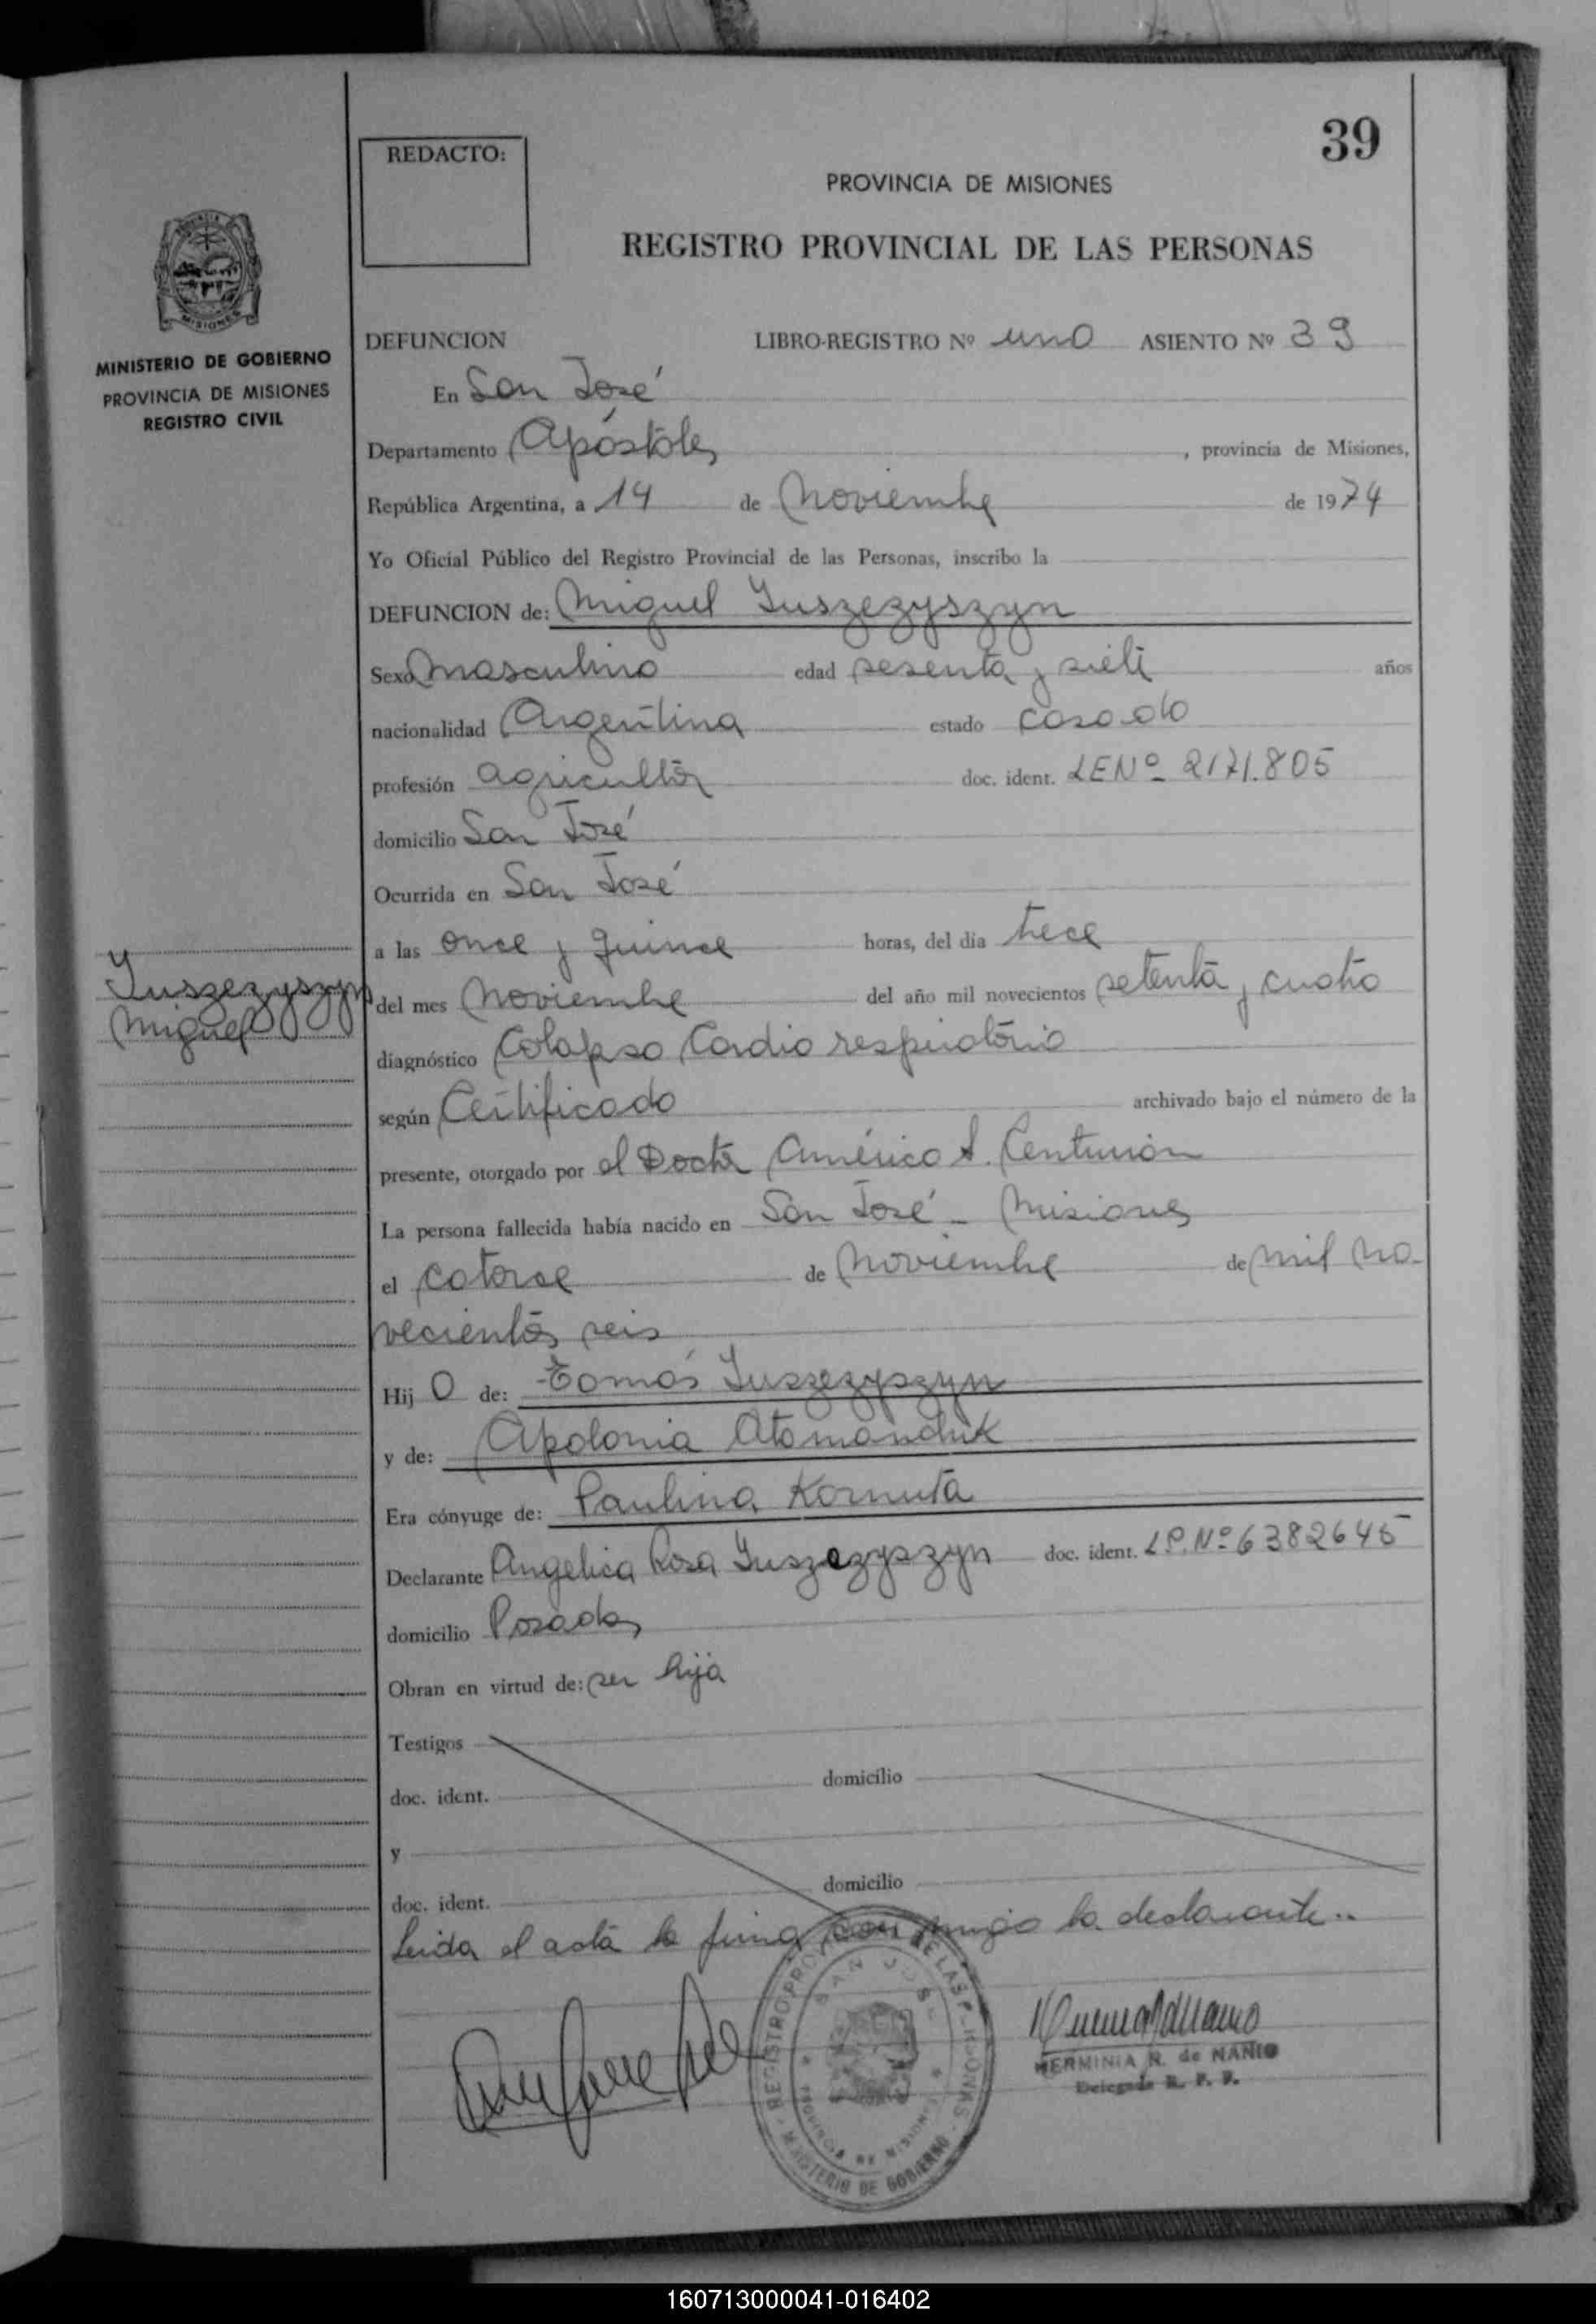 39
REDACTO:
PROVINCIA DE MISIONES
REGISTRO PROVINCIAL DE LAS PERSONAS
MISIONES
MINISTERIO DE GOBIERNO
PROVINCIA DE MISIONES
REGISTRO CIVIL
DEFUNCION LIBRO-REGISTRO Nº uno ASIENTO Nº 39
En San José
Departamento Apóstoles, provincia de Misiones,
República Argentina, a 14 de Noviembre de 1974
Yo Oficial Público del Registro Provincial de las Personas, inscribo la
DEFUNCION de: Miguel Iuszezyszyn
Sexo Masculino edad sesenta y siete años
nacionalidad Argentina estado casado
profesión agricultor doc. ident. LE Nº 2171.805
domicilio San José
Ocurrida en San José
a las once y quince horas, del dia trece
Iuszezyszyn
Miguel
del mes Noviembre del año mil novecientos setenta y cuatro
diagnóstico Colapso Cardio respiratorio
según Certificado archivado bajo el número de la
presente, otorgado por el Doctor Américo A. Centurión
La persona fallecida había nacido en San José - Misiones
el catorce de Noviembre de mil no-
vecientos seis
Hij o de: Tomás Iuszezyszyn
y de: Apolonia Atamanchuk
Era cónyuge de: Paulina Kornuta
Declarante Angelica Rosa Iuszezyszyn doc. ident. L.C. Nº 6382645
domicilio Posadas
Obran en virtud de: ser hija
Testigos
doc. ident. domicilio
y
doc. ident. domicilio
Leida el acta la firma conmigo la declarante..
REGISTRO PROVINCIAL DE LAS PERSONAS
SAN JOSE
PROVINCIA DE MISIONES
MINISTERIO DE GOBIERNO
HERMINIA R. de NAÑIO
Delegada R. P. P.
160713000041-016402